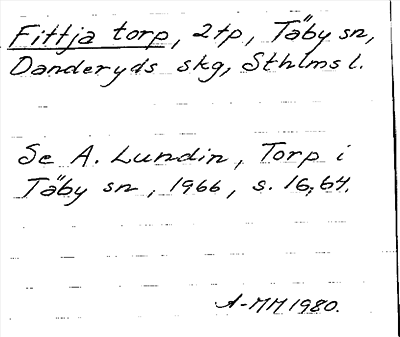 Fittja torp, 2 tp, Täby sn,
Danderyds skg, Sthlms l.
Se A. Lundin, Torp i
Täby sn, 1966, s. 16, 64.
A-MM 1980.